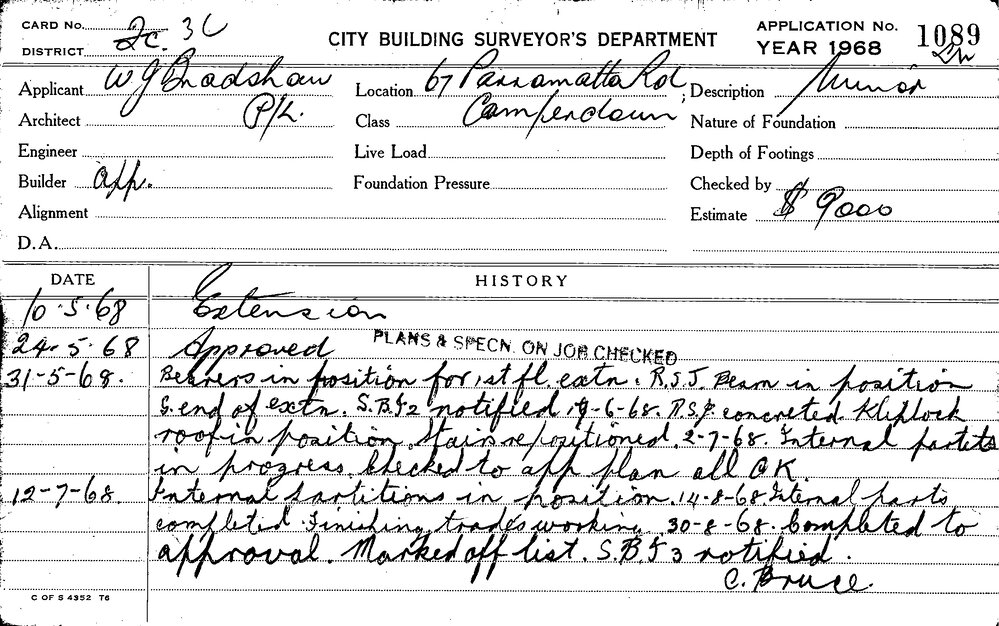 CARD No. 2c. 3C
DISTRICT
CITY BUILDING SURVEYOR'S DEPARTMENT
APPLICATION No. 1089
YEAR 1968
Applicant W G Bradshaw
Location 67 Parramatta Rd,
Description Minor
Architect P/L.
Class Camperdown
Nature of Foundation
Engineer
Live Load
Depth of Footings
Builder app.
Foundation Pressure
Checked by
Alignment
Estimate $ 9000
D.A.
DATE HISTORY
10.5.68 Extension
24.5.68 Approved PLANS & SPECN. ON JOB CHECKED
31-5-68. Bearers in position for 1st fl. extn. R.S.J. Beam in position
S. end of extn. S.B.I 2 notified. 19-6-68. R.S.J. concreted Kliplock
roof in position. Stairs repositioned. 2-7-68. Internal partits
in progress. Checked to app plan all O K
12-7-68. Internal partitions in position. 14-8-68. Internal parts
completed. Finishing trades working. 30-8-68. Completed to
approval. Marked off list. S.B.I 3 notified.
C. Bruce.
C OF S 4352 T6